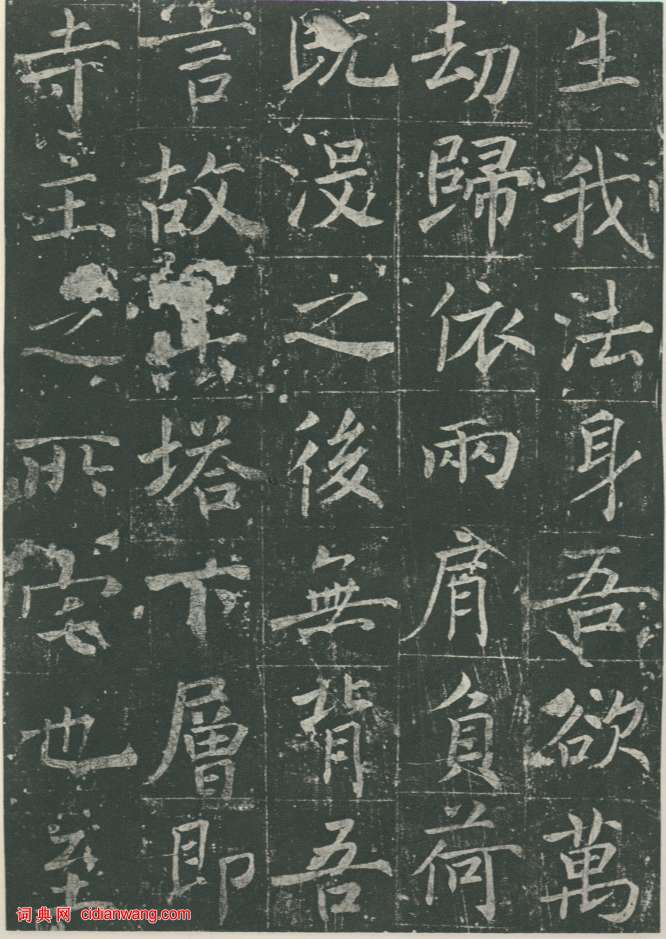 生我法身吾欲萬
劫歸依兩肩負荷
既没之後無背吾
言故塔下層即
寺主之所宅也至
词典网 cidianwang.com